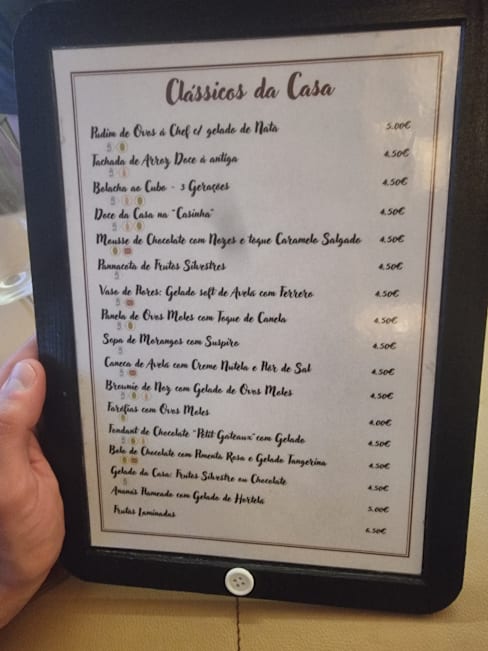 Clássicos da Casa
Pudim de Ovos á Chef c/ gelado de Nata 5.00€
Tachada de Arroz Doce á antiga 4.50€
Bolacha ao Cubo - 3 Gerações 4.50€
Doce da Casa na "Casinha" 4.50€
Mousse de Chocolate com Nozes e toque Caramelo Salgado 4.50€
Pannacota de Frutos Silvestres 4.50€
Vaso de Flores: Gelado soft de Avelã com Ferrero 4.50€
Panela de Ovos Moles com Toque de Canela 4.50€
Sopa de Morangos com Suspiro 4.50€
Caneca de Avelã com Creme Nutela e Flôr de Sal 4.50€
Brownie de Noz com Gelado de Ovos Moles 4.50€
Farófias com Ovos Moles 4.00€
Fondant de Chocolate "Petit Gateaux" com Gelado 4.50€
Bolo de Chocolate com Pimenta Rosa e Gelado Tangerina 4.50€
Gelado da Casa: Frutos Silvestre ou Chocolate 4.50€
Ananás Flameado com Gelado de Hortelã 5.00€
Frutas Laminadas 6.50€